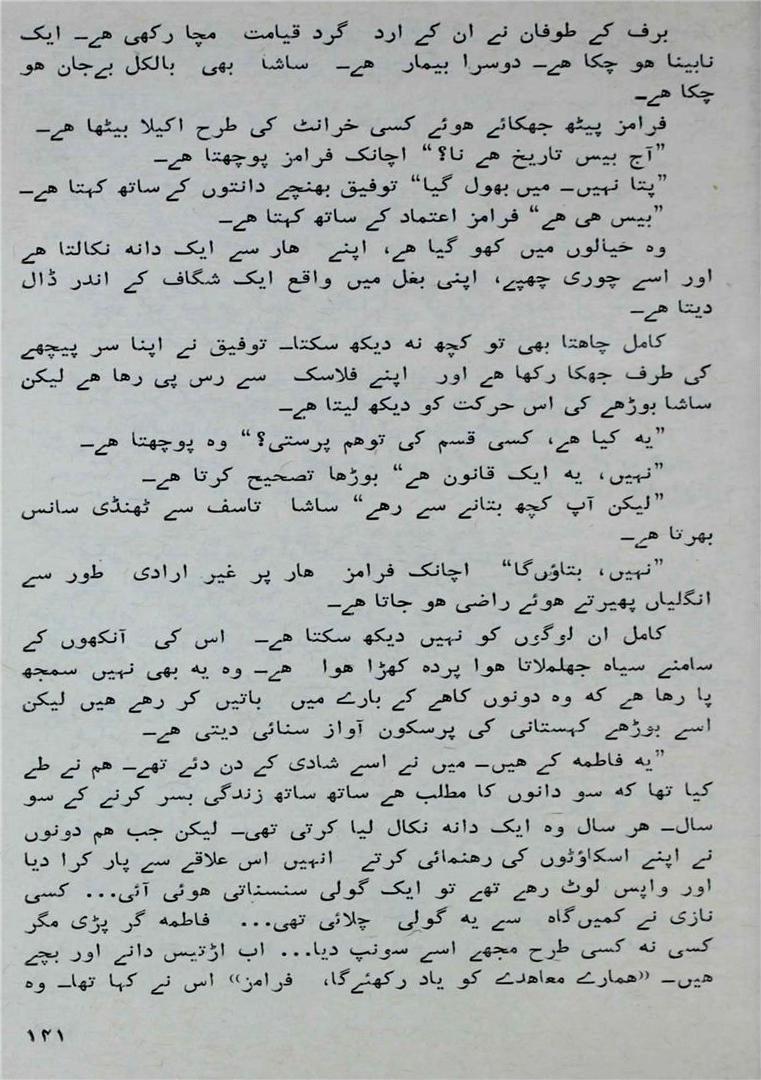 برف کے طوفان نے ان کے ارد گرد قیامت مچا رکھی ھے۔ ایک
نابینا ھو چکا ھے۔ دوسرا بیمار ھے۔ ساشا بھی بالکل بےجان ھو
چکا ھے۔
فرامز پیٹھ جھکائے ھوئے کسی خرانٹ کی طرح اکیلا بیٹھا ھے۔
”آج بیس تاریخ ھے نا؟“ اچانک فرامز پوچھتا ھے۔
”پتا نہیں۔ میں بھول گیا“ توفیق بھنچے دانتوں کے ساتھ کہتا ھے۔
”بیس ھی ھے“ فرامز اعتماد کے ساتھ کہتا ھے۔
وہ خیالوں میں کھو گیا ھے، اپنے ھار سے ایک دانہ نکالتا ھے
اور اسے چوری چھپے، اپنی بغل میں واقع ایک شگاف کے اندر ڈال
دیتا ھے۔
کامل چاھتا بھی تو کچھ نہ دیکھ سکتا۔ توفیق نے اپنا سر پیچھے
کی طرف جھکا رکھا ھے اور اپنے فلاسک سے رس پی رھا ھے لیکن
ساشا بوڑھے کی اس حرکت کو دیکھ لیتا ھے۔
”یہ کیا ھے، کسی قسم کی توھم پرستی؟“ وہ پوچھتا ھے۔
”نہیں، یہ ایک قانون ھے“ بوڑھا تصحیح کرتا ھے۔
”لیکن آپ کچھ بتانے سے رھے“ ساشا تاسف سے ٹھنڈی سانس
بھرتا ھے۔
”نہیں، بتاؤں گا“ اچانک فرامز ھار پر غیر ارادی طور سے
انگلیاں پھیرتے ھوئے راضی ھو جاتا ھے۔
کامل ان لوگوں کو نہیں دیکھ سکتا ھے۔ اس کی آنکھوں کے
سامنے سیاہ جھلملاتا ھوا پردہ کھڑا ھوا ھے۔ وہ یہ بھی نہیں سمجھ
پا رھا ھے کہ وہ دونوں کاھے کے بارے میں باتیں کر رھے ھیں لیکن
اسے بوڑھے کہستانی کی پرسکون آواز سنائی دیتی ھے۔
”یہ فاطمہ کے ھیں۔ میں نے اسے شادی کے دن دئے تھے۔ ھم نے طے
کیا تھا کہ سو دانوں کا مطلب ھے ساتھ ساتھ زندگی بسر کرنے کے سو
سال۔ ھر سال وہ ایک دانہ نکال لیا کرتی تھی۔ لیکن جب ھم دونوں
نے اپنے اسکاؤٹوں کی رھنمائی کرتے انہیں اس علاقے سے پار کرا دیا
اور واپس لوٹ رھے تھے تو ایک گولی سنسناتی ھوئی آئی... کسی
نازی نے کمیں گاہ سے یہ گولی چلائی تھی... فاطمہ گر پڑی مگر
کسی نہ کسی طرح مجھے اسے سونپ دیا... اب اڑتیس دانے اور بچے
ھیں۔ «ھمارے معاھدے کو یاد رکھئےگا، فرامز» اس نے کہا تھا۔ وہ
۱۲۱